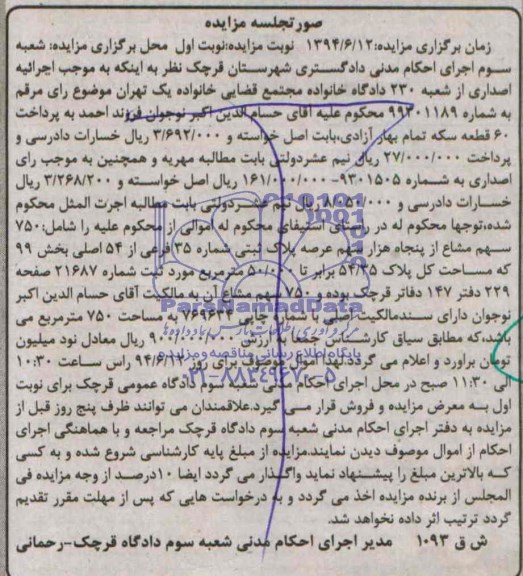 صورتجلسه مزایده
زمان برگزاری مزایده:۱۳۹۴/۶/۱۲ نوبت مزایده:نوبت اول محل برگزاری مزایده: شعبه
سـوم اجرای احکام مدنی دادگستری شهرستان قرچک نظر به اینکه به موجب اجرائیه
اصداری از شعبه ۲۳۰ دادگاه خانواده مجتمع قضایی خانواده یک تهران موضوع رای مرقم
به شماره ۹۹۳۰۱۱۸۹ محکوم علیه آقای حسام الدین اکبر نوجوان فرزند احمد به پرداخت
۶۰ قطعه سکه تمام بهار آزادی،بابت اصل خواسته و ۳/۶۹۲/۰۰۰ ریال خسارات دادرسی و
پرداخت ۲۷/۰۰۰/۰۰۰ ریال نیم عشردولتی بابت مطالبه مهریه و همچنین به موجب رای
اصداری به شـماره ۹۳۰۱۵۰۵- ۱۶۱/۰۰۰/۰۰۰ ریال اصل خواسـته و ۳/۲۶۸/۲۰۰ ریال
خسـارات دادرسی و ریال نیم عشـردولتی بابت مطالبه اجرت المثل محکوم
شده،توجها محکوم له در راستای استیفای محکوم له اموالی از محکوم علیه را شامل:۷۵۰
سـهم مشاع از پنجاه هزار سهم عرصه پلاک ثبتی شماره ۳۵ فرعی از ۵۴ اصلی بخش ۹۹
که مسـاحت کل پلاک ۵۴/۳۵ برابر تا مترمربع مورد ثبت شماره ۲۱۶۸۷ صفحه
۲۲۹ دفتر ۱۴۷ دفاتر قرچک بوده، ۷۵۰ سهم مشاع آن به مالکیت آقای حسام الدین اکبر
نوجوان دارای سـندمالکیت اصلی با شماره چاپی ۷۶۹۶۳۴ به مساحت ۷۵۰ مترمربع می
باشد،که مطابق سیاق کارشناس جمعا به ارزش ریال معادل نود میلیون
تومان براورد و اعلام می گردد.لهذا اموال موصوف برای روز ۹۴/۶/۱۲ راس سـاعت ۱۰:۳۰
الی ۱۱:۳۰ صبح در محل اجرای احکام مدنی شعبه سـوم دادگاه عمومی قرچک برای نوبت
اول بـه معرض مزایده و فروش قرار مـی گیرد.علاقمندان می توانند ظرف پنج روز قبل از
مزایده به دفتر اجرای احکام مدنی شعبه سوم دادگاه قرچک مراجعه و با هماهنگی اجرای
احکام از اموال موصوف دیدن نمایند.مزایده از مبلغ پایه کارشناسی شروع شده و به کسی
کـه بالاترین مبلغ را پیشـنهاد نماید واگـذار می گردد ایضا ۱۰درصـد از وجه مزایده فی
المجلس از برنده مزایده اخذ می گردد و به درخواست هایی که پس از مهلت مقرر تقدیم
گردد ترتیب اثر داده نخواهد شد.
ش ق ۱۰۹۳ مدیر اجرای احکام مدنی شعبه سوم دادگاه قرچک-رحمانی
ParsNamadData
پایگاه اطلاع رسانی مناقصه و مزایده
۰۲۱-۸۸۳۴۹۶۷۰-۵